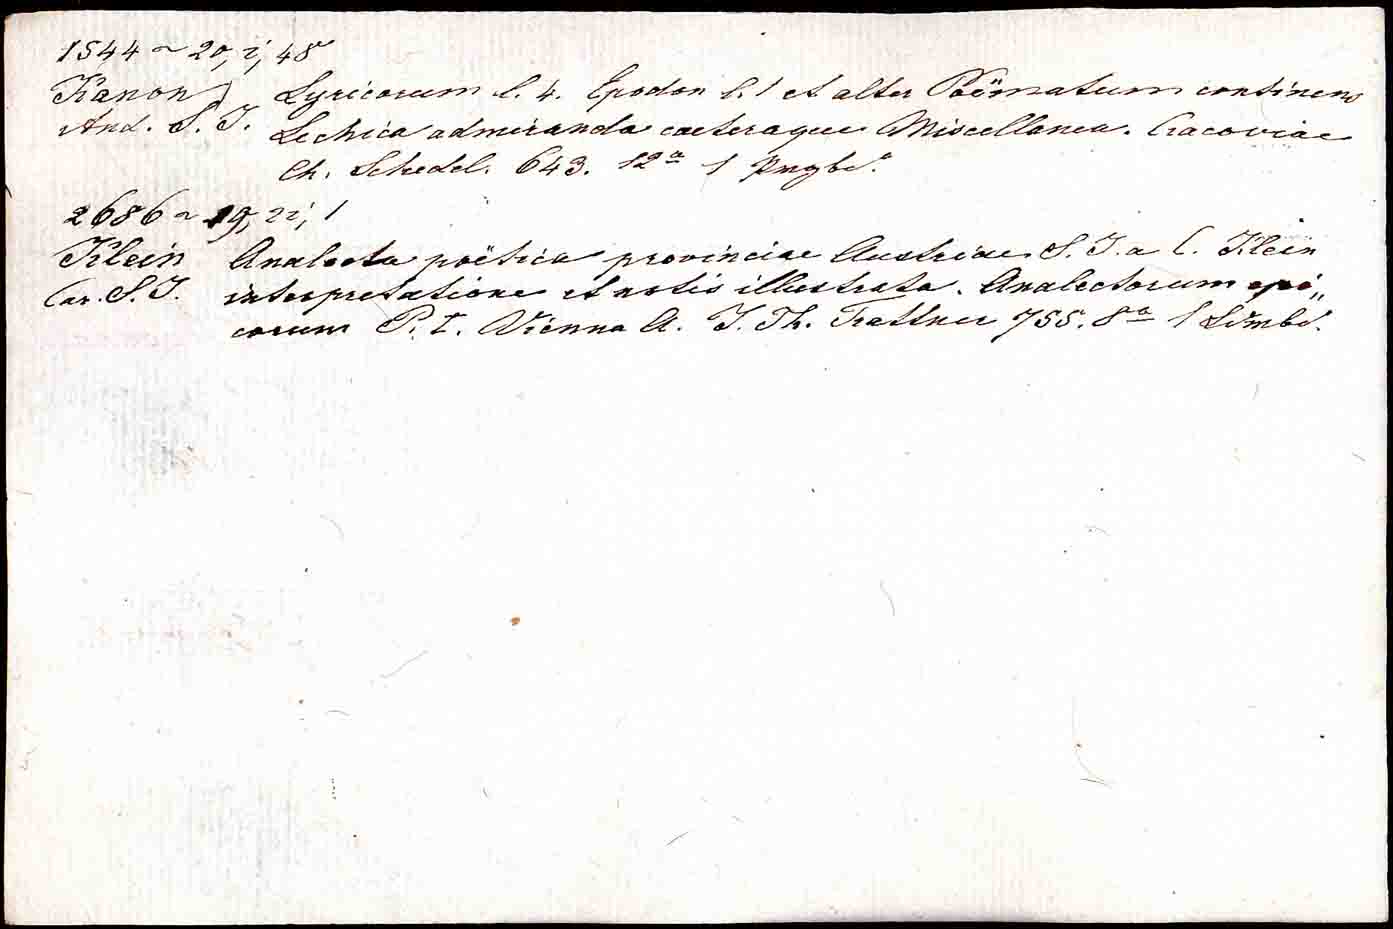 1544 ~ 20, i, 48
Kanon Lyricorum l. 4. Epodon l. 1 et alter Poëmatum continens
And. S. J. Lechica admiranda caeteraque Miscellanea. Cracoviae
Ch. Schedel. 643. 12º 1 Prgbd.
2686 ~ 19, ii, 1
Klein Analecta poëtica provinciae Austriae S. J. a C. Klein
Car. S. J. interpretatione et notis illustrata. Analectorum epi„
corum P. I. Vienna A. J. Th. Trattner 755. 8º 1